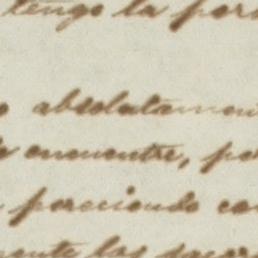 tengo la
absolutamen
encuentre, po
pareciendo con
mente los